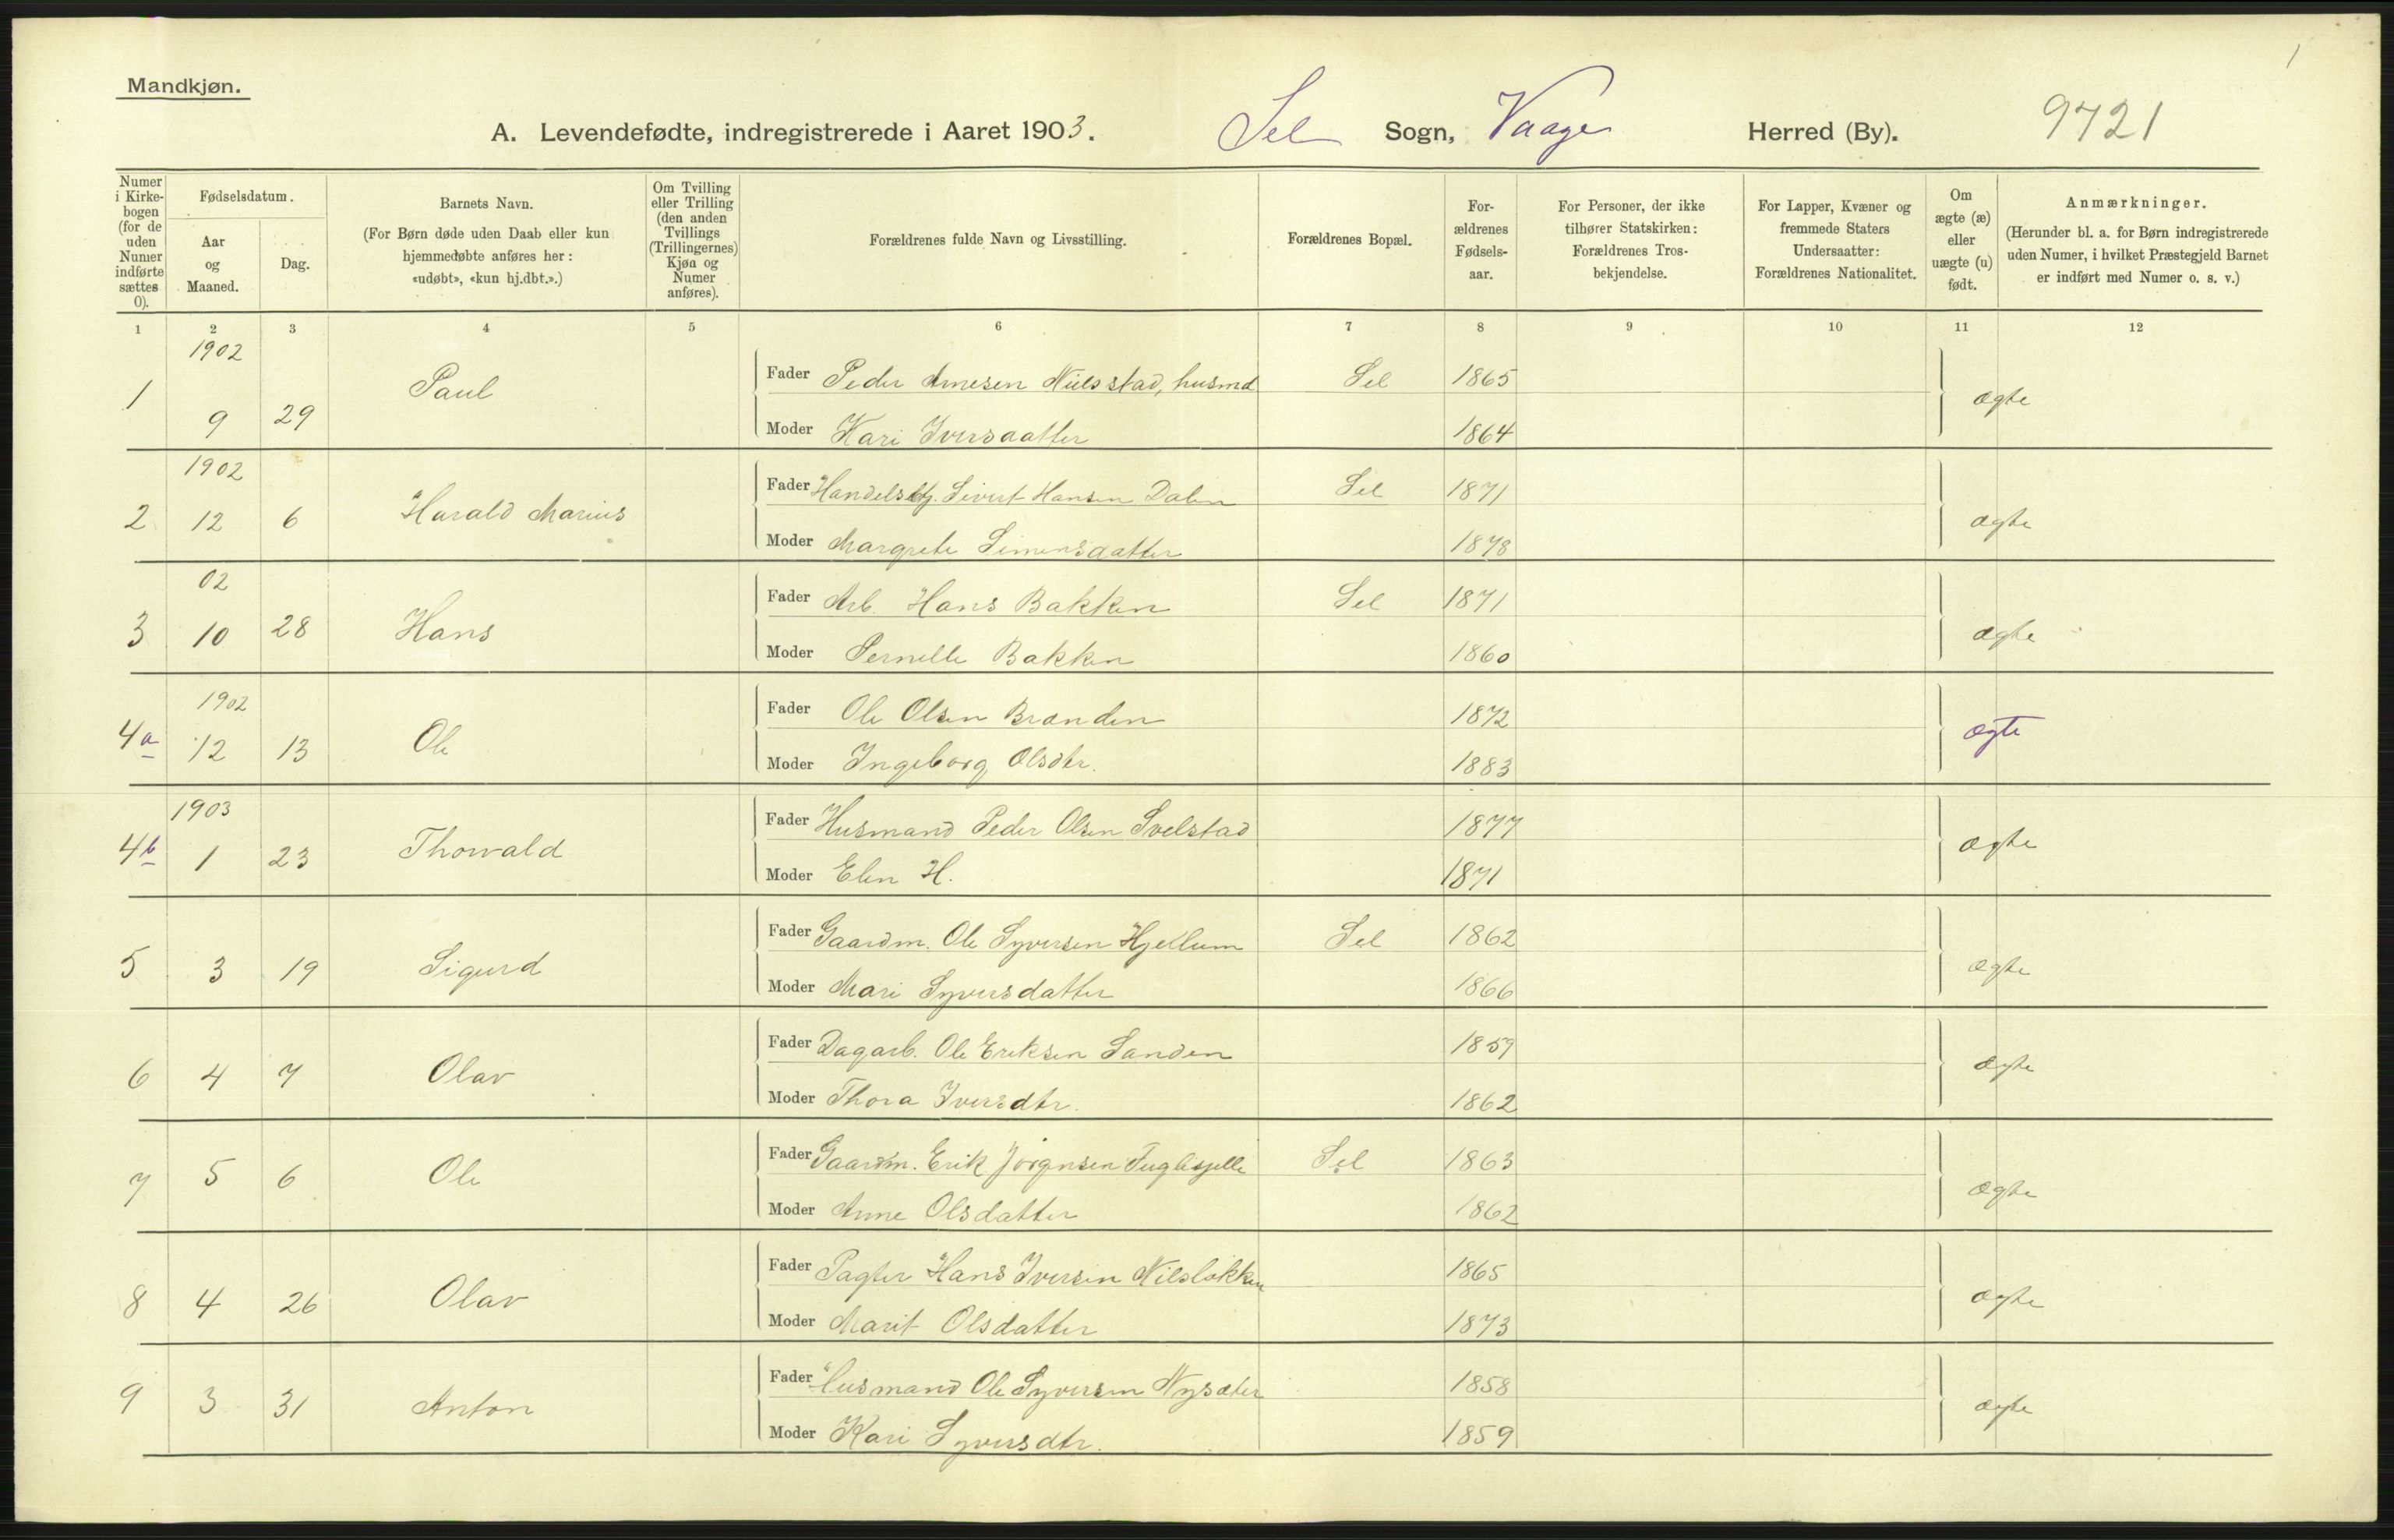 1
Mandkjøn.
A. Levendefødte, indregistrerede i Aaret 1903. Sel Sogn, Vaage Herred (By). 9721
Numer i Kirkebogen (for de uden Numer indførte sættes 0).
Fødselsdatum.
Aar og Maaned.
Dag.
Barnets Navn.
(For Børn døde uden Daab eller kun hjemmedøbte anføres her: «udøbt», «kun hj.dbt.».)
Om Tvilling eller Trilling (den anden Tvillings (Trillingernes) Kjøn og Numer anføres).
Forældrenes fulde Navn og Livsstilling.
Forældrenes Bopæl.
Forældrenes Fødselsaar.
For Personer, der ikke tilhører Statskirken: Forældrenes Trosbekjendelse.
For Lapper, Kvæner og fremmede Staters Undersaatter: Forældrenes Nationalitet.
Om ægte (æ) eller uægte (u) født.
Anmærkninger.
(Herunder bl. a. for Børn indregistrerede uden Numer, i hvilket Præstegjeld Barnet er indført med Numer o. s. v.)
1 2 3 4 5 6 7 8 9 10 11 12
1902
1 9 29 Paul Fader Peder Arnesen Nielsstad, husmd Sel 1865 ægte
Moder Kari Iversdatter 1864
1902
2 12 6 Harald Marius Fader Handelsbtj. Sivert Hansen Dalen Sel 1871 ægte
Moder Margrete Simensdatter 1878
02
3 10 28 Hans Fader Arb. Hans Bakken Sel 1871 ægte
Moder Pernelle Bakken 1860
1902
4a 12 13 Ole Fader Ole Olsen Brænden 1872 ægte
Moder Ingeborg Olsdtr. 1883
1903
4b 1 23 Thorvald Fader Husmand Peder Olsen Selstad 1877 ægte
Moder Elen H. 1871
5 3 19 Sigurd Fader Gaardm. Ole Syversen Hjellum Sel 1862 ægte
Moder Mari Syversdatter 1866
6 4 7 Olav Fader Dagarb. Ole Eriksen Sanden 1859 ægte
Moder Thora Iversdtr. 1862
7 5 6 Ole Fader Gaardm. Erik Jørgensen Sel 1863 ægte
Moder Anne Olsdatter 1862
8 4 26 Olav Fader Pagter Hans Iversen Nilsløkken 1865 ægte
Moder Marit Olsdatter 1873
9 3 31 Anton Fader Husmand Ole Syversen Nysæter 1858 ægte
Moder Kari Syversdtr. 1859